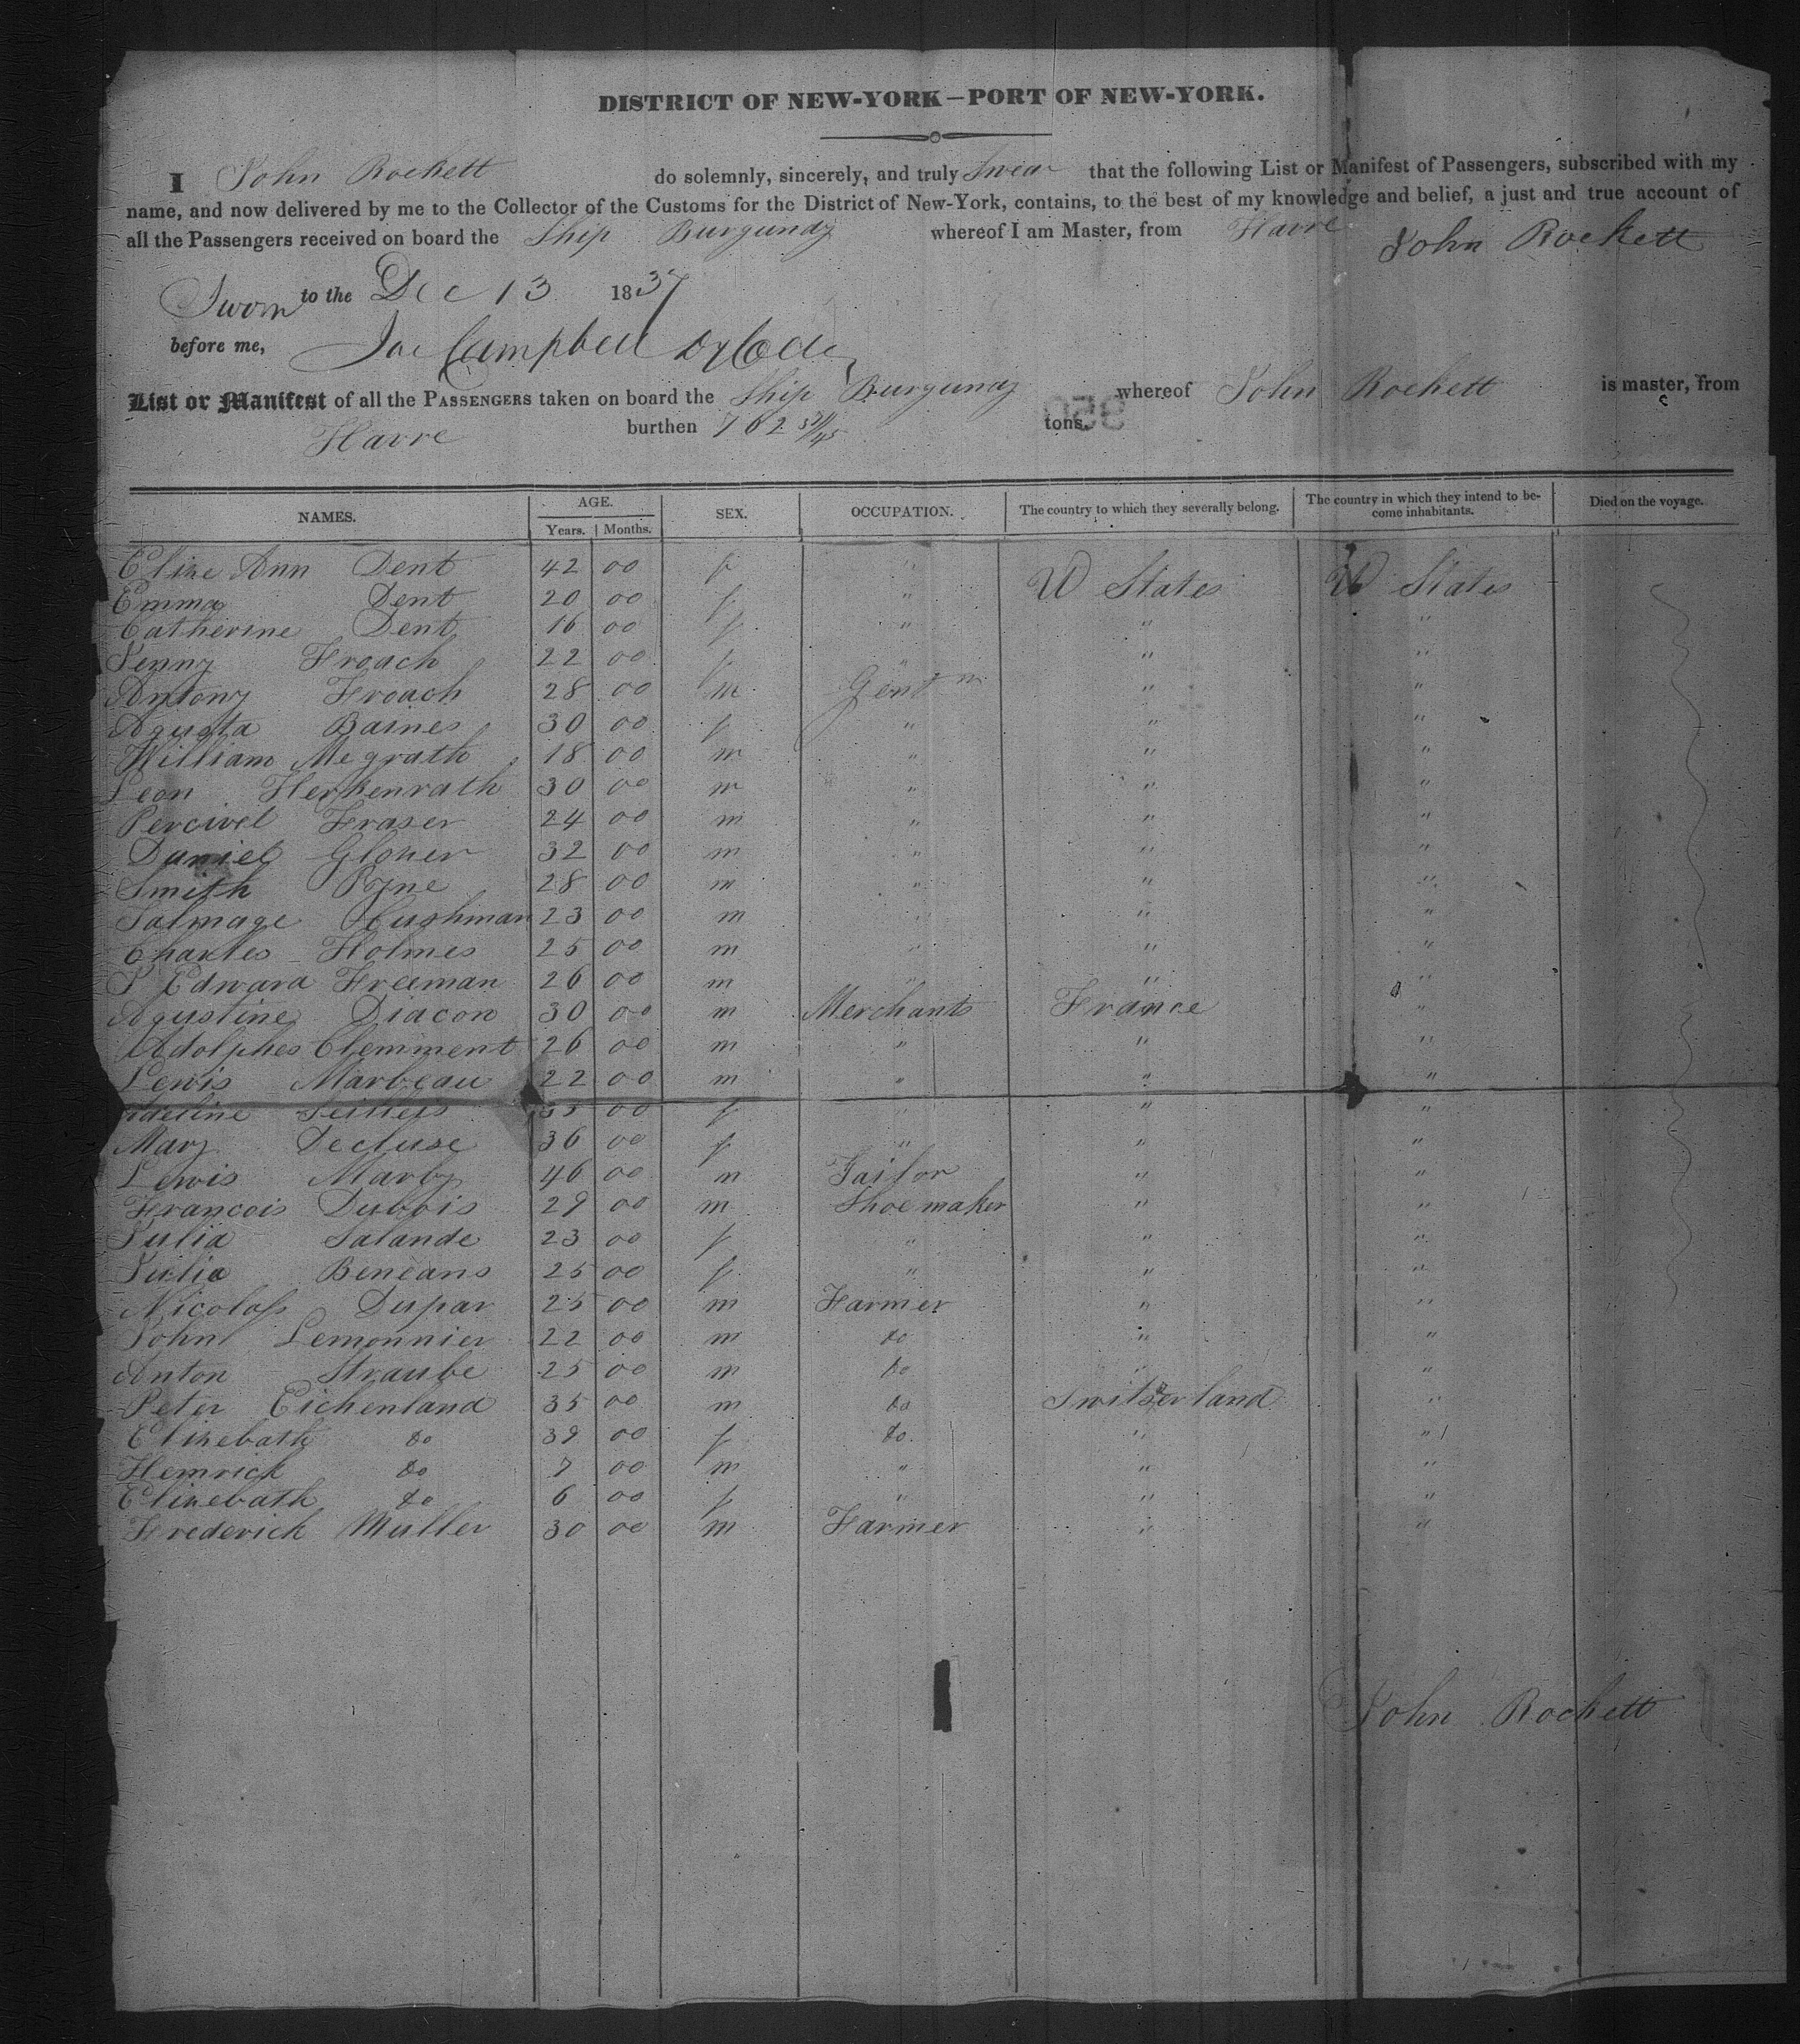 DISTRICT OF NEW-YORK—PORT OF NEW-YORK.
I John Rockett do solemnly, sincerely, and truly Swear that the following List or Manifest of Passengers, subscribed with my
name, and now delivered by me to the Collector of the Customs for the District of New-York, contains, to the best of my knowledge and belief, a just and true account of
all the Passengers received on board the Ship Burgundy whereof I am Master, from Havre John Rockett
Sworn to the Dec 13 1837
before me, Campbell
List or Manifest of all the PASSENGERS taken on board the Ship Burgundy whereof John Rockett is master, from
Havre burthen 762 tons.
NAMES. AGE. SEX. OCCUPATION. The country to which they severally belong. The country in which they intend to be- Died on the voyage.
Years. Months. come inhabitants.
Elize Ann Dent 42 00 f " U States U States
Emma Dent 20 00 f "
Catherine Dent 16 00 f " " "
Jenny Froach 22 00 f " " "
Antony Froach 28 00 m Gentm " "
Agusta Baines 30 00 f " " "
William Megrath 18 00 m " " "
Leon Herkenrath 30 00 m " " "
Percivel Fraser 24 00 m " " "
Daniel Glover 32 00 m " " "
Smith Pyne 28 00 m " " "
Talmage Cushman 23 00 m " " "
Charles Holmes 25 00 m " " "
P Edward Freeman 26 00 m " " "
Agustine Diacon 30 00 m Merchants France "
Adolphes Clemment 26 00 m " " "
Lewis Marbeau 22 00 m " " "
Adeline 35 00 f " " "
Mary Decluse 36 00 f " " "
Lewis Marby 46 00 m Tailor " "
Francois Dubois 29 00 m Shoe maker " "
Julia Salande 23 00 f " " "
Julia Beneans 25 00 f " " "
Nicolass Dupar 25 00 m Farmer " "
John Lemonnier 22 00 m do " "
Anton Straube 25 00 m do " "
Peter Eichenland 35 00 m do Switzerland "
Elizebath do 39 00 f do " "
Hemrick do 7 00 m " " "
Elizebath do 6 00 f " " "
Frederick Muller 30 00 m Farmer " "
John Rockett